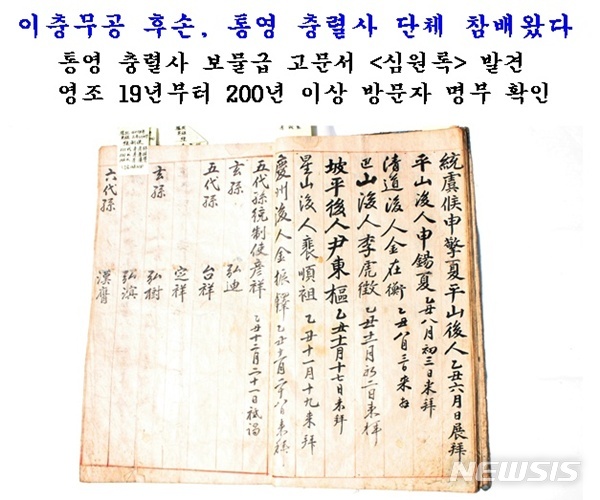 이충무공 후손, 통영 충렬사 단체 참배왔다
통영 충렬사 보물급 고문서 <심원록> 발견
영조 19년부터 200년 이상 방문자 명부 확인
統虞候申擎夏平山後人 乙丑六月日展拜
平山後人申錫夏 乙丑八月初三日來拜
清道後人金在衡 乙丑八月三日來拜
山後人李虎徵 乙丑十二月初二日來拜
坡平後人尹東樞 乙丑十二月十七日來拜
星山後人裵順祖 乙丑十一月十九來拜
慶州後人金振鐸 乙丑十二月二十八日來拜
五代孫統制使彦祥 乙丑十二月二十一日祗謁
玄孫 弘迪
五代孫 台祥
定祥
玄孫 弘樹
弘濱
六代孫 漢膺
NEWSIS